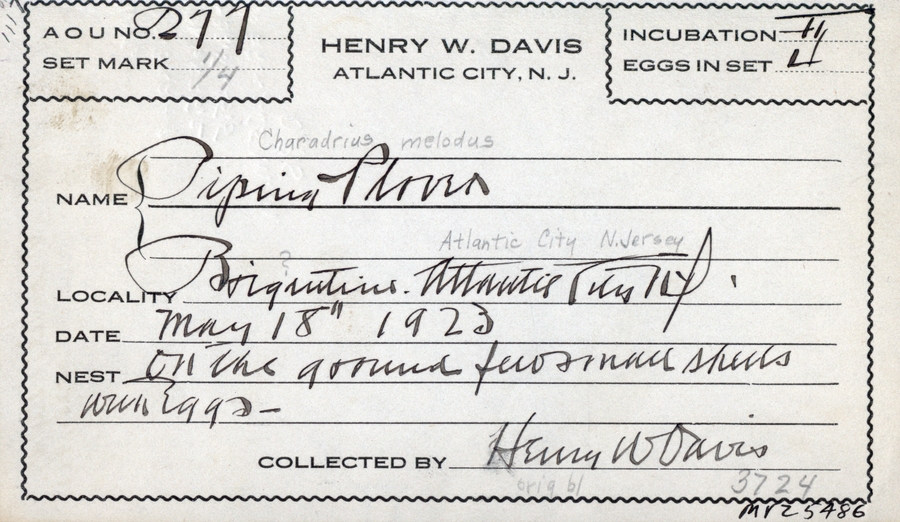 A O U NO. 277
SET MARK 1/4
HENRY W. DAVIS
ATLANTIC CITY, N. J.
INCUBATION
EGGS IN SET
Charadrius melodus
NAME Piping Plover
Atlantic City N.Jersey
?
LOCALITY Brigintine. Atlantic City NJ.
DATE May 18" 1923
NEST On the ground few small shells
with Eggs-
COLLECTED BY Henry W Davis
orig bl 3724
MVZ 5486